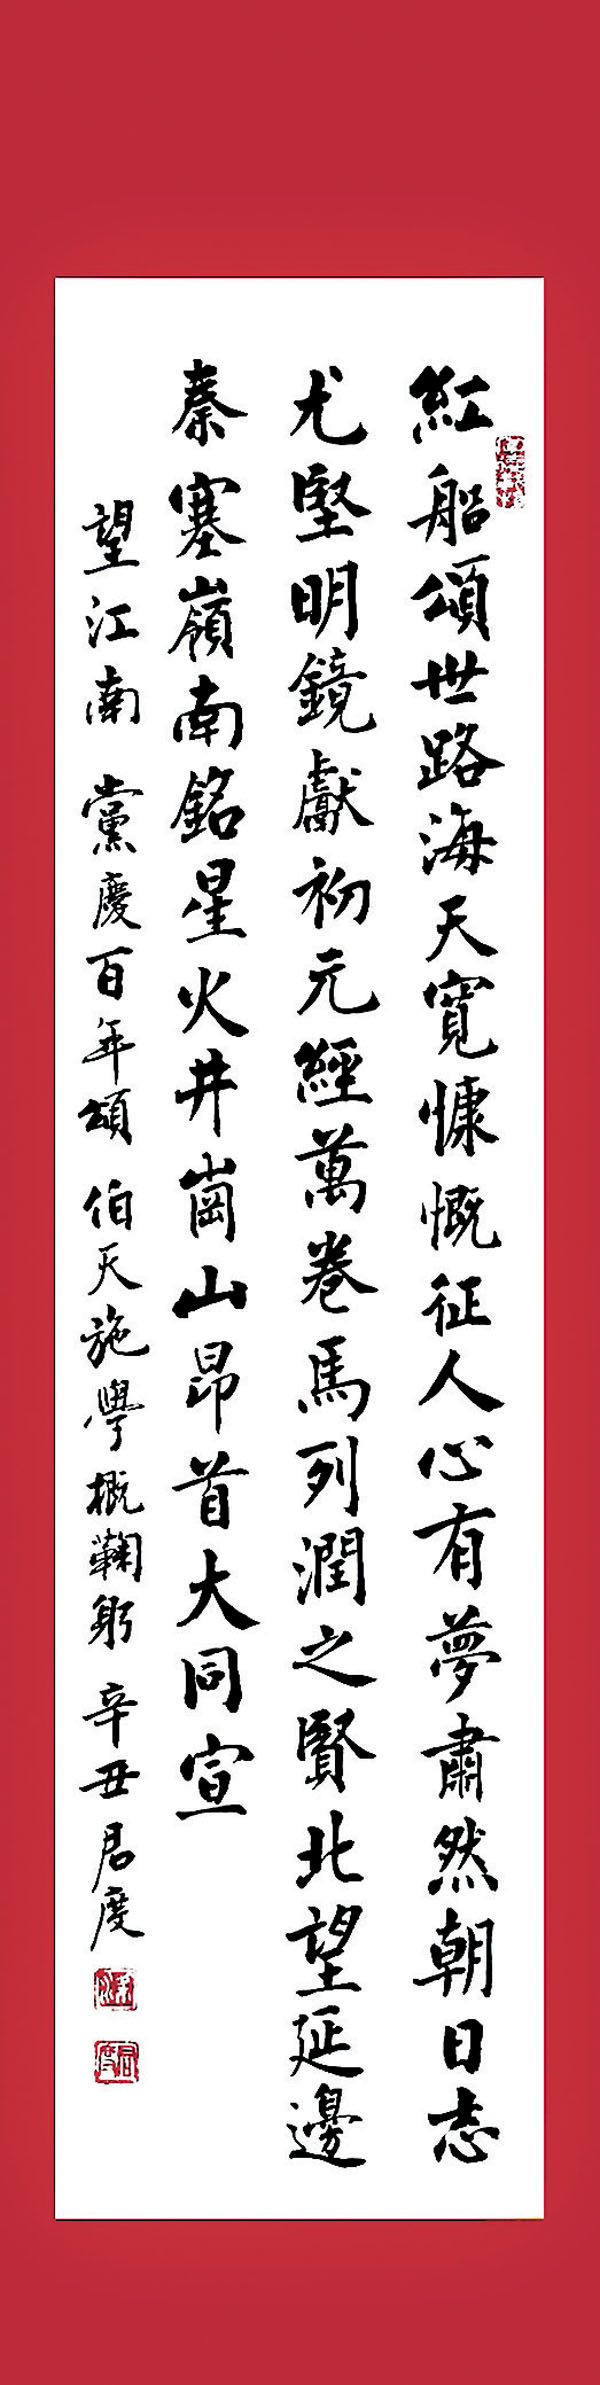 紅船頌世路海天寬慷慨征人心有夢肅然朝日志
尤堅明鏡獻初元經萬卷馬列潤之賢北望延邊
秦塞嶺南銘星火井崗山昂首大同宣
望江南 黨慶百年頌 伯天施學概鞠躬 辛丑君度